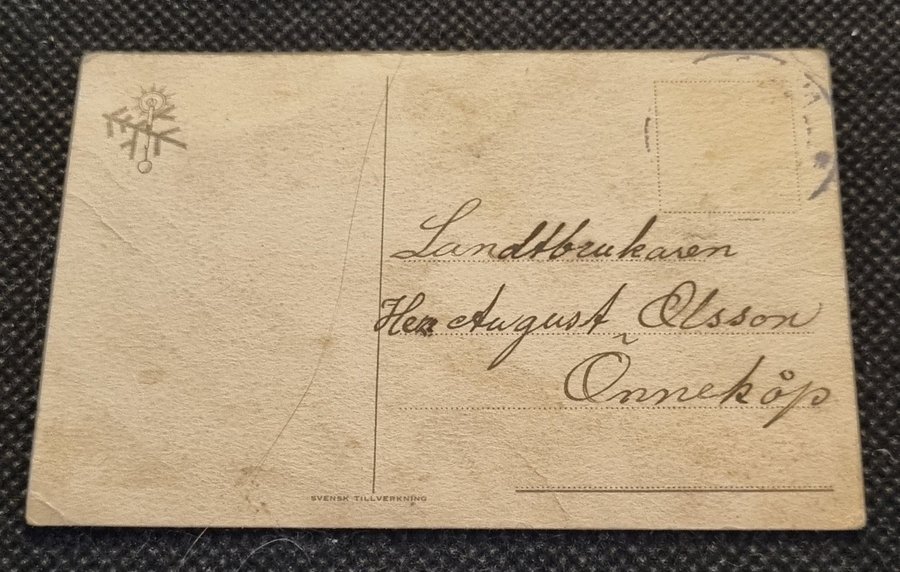 Landtbrukaren
Herr August Olsson
Önneköp
SVENSK TILLVERKNING